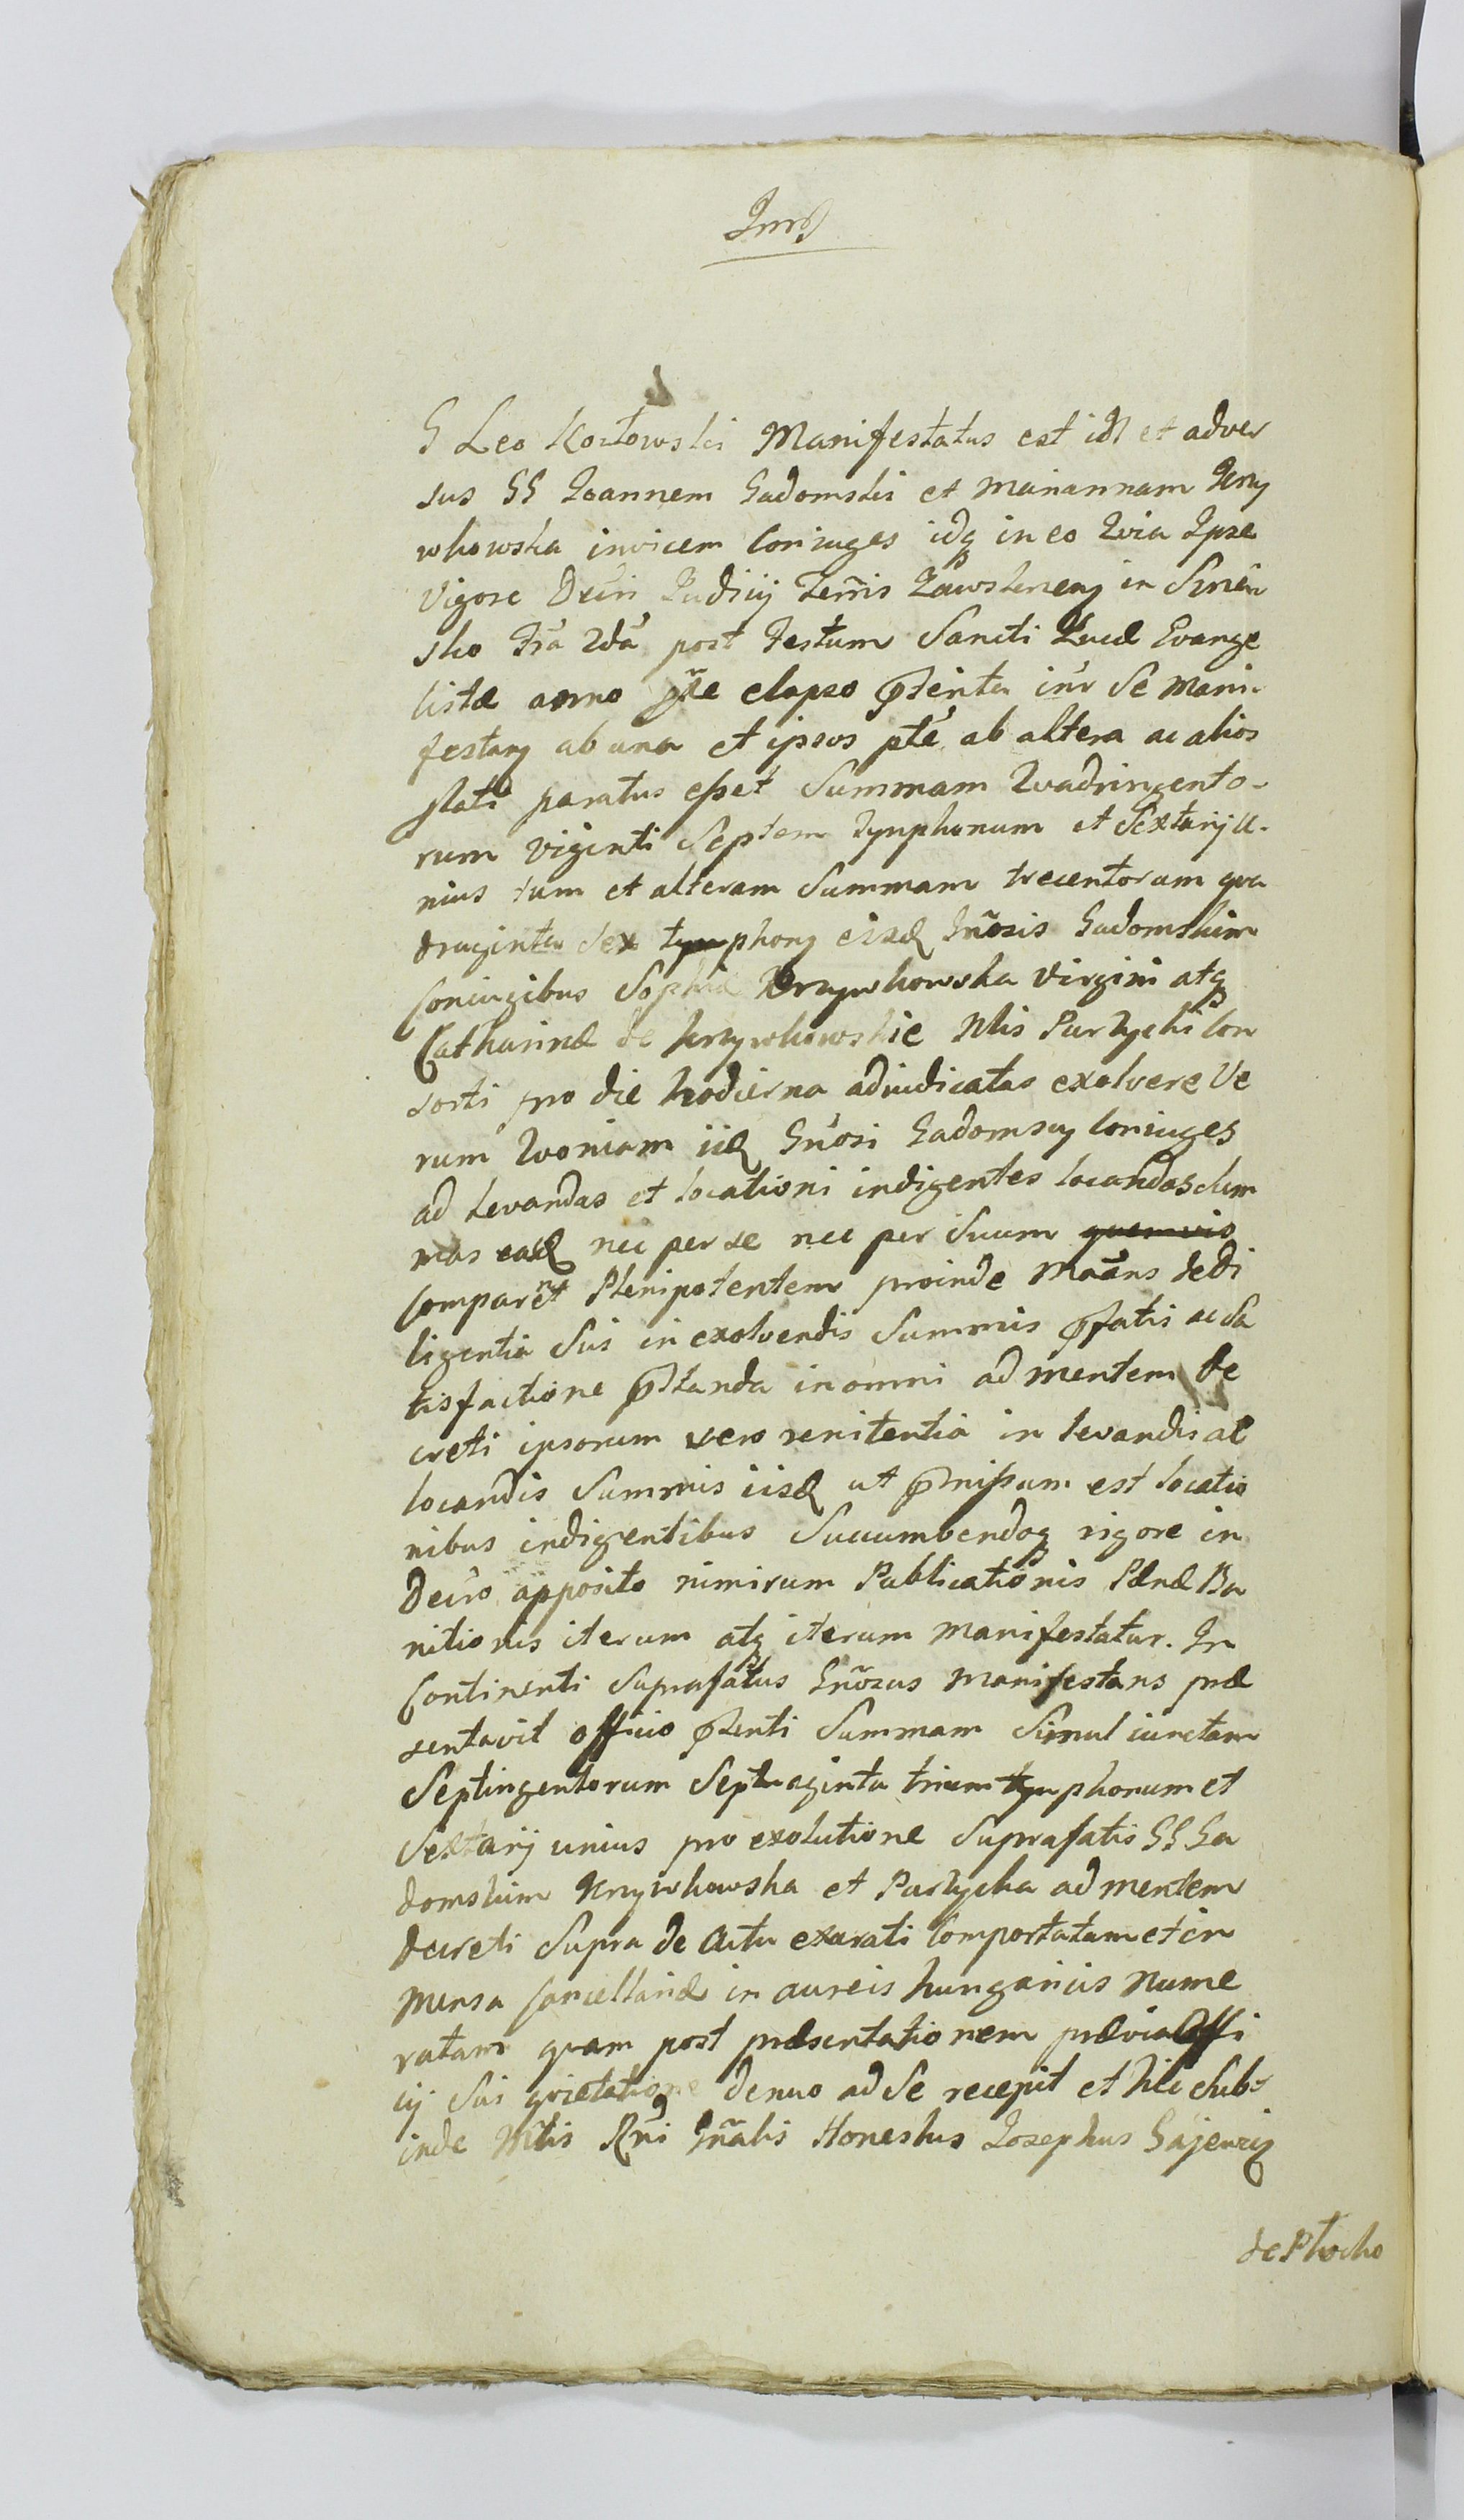 G Leo Kozłowski Manifestatus est id et adver
sus GG Joannem Gadomski et Mariannam Krzy
wkowska invicem Coniuges idq in eo Qvia Ipse
Vigore Decri Judicij Terris Zawskrneny in
sko Fra 2da post Festum Sancti Lucæ Evange
listæ anno elapso intr Se Mani-
festany ab una et ipsos pte ab altera ac alios
lati paratus esset Summam Qvadringento-
rum viginti Septem Tynphonum et Sextarij u-
nius tum et alteram Summam trecentorum qva
draginta sex tynphony eisd Gnosis Gadomskim
Coniugibus Sophiæ Krzywkowska Virgini atq
Catharinæ de Krzywkowskie Nlis Purzycki Con
sorti pro die hodierna adiudicatas exolvere Ve
rum Qvoniam iid Gnosi Gadomscy Coniuges
ad levandas et locationi indigentes locandas Sum
mas easd nec per se nec per Suum quemvis
Comparent Plenipotentem proinde Maans de di
ligentia Sui in exolvendis Summis pfatis ac Sa
tisfactione pstanda in omni ad mentem De
creti ipsorum vero renitentia in levandis ac
locandis Summis iisd ut pmissum est locatio
nibus indigentibus Succumbendoq rigore in
Decro apposito nimirum Publicationis Pænæ Ba
nitionis iterum atq iterum manifestatur. In
Continenti Suprafatus Gnosus Manifestans præ
sentavit officio psenti Summam Simul iunctam
Septingentorum Septuaginta trium tynphonum et
Sextarij unius pro exolutione Suprafatis GG Ga
domskim Krzywkowska et Purzycka ad mentem
Decreti Supra de Actu exarati Comportatam et in
Mensa Cancellariæ in aureis hungaricis Nume
ratam qvam post præsentationem prævia Offi
cij Sui qvietatione denuo ad Se recepit et hic Sub-
inde Mtis Rni Gnalis Honestus Josephus Gajewiz
de Płocko